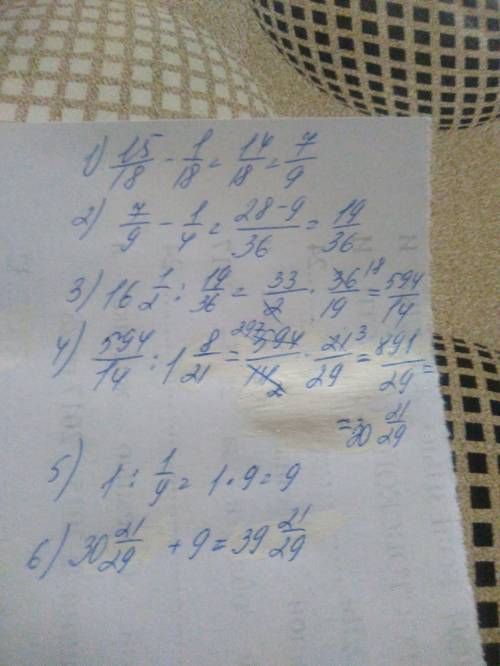 1) 15/18 - 1/18 = 14/18 = 7/9
2) 7/9 - 1/4 = 28-9/36 = 19/36
3) 16 1/2 : 19/36 = 33/2 · 36 18/19 = 594/14
4) 594/14 : 1 8/21 = 297 594/14 2 · 21 3/29 = 891/29 =
= 30 21/29
5) 1 : 1/9 = 1 · 9 = 9
6) 30 21/29 + 9 = 39 21/29